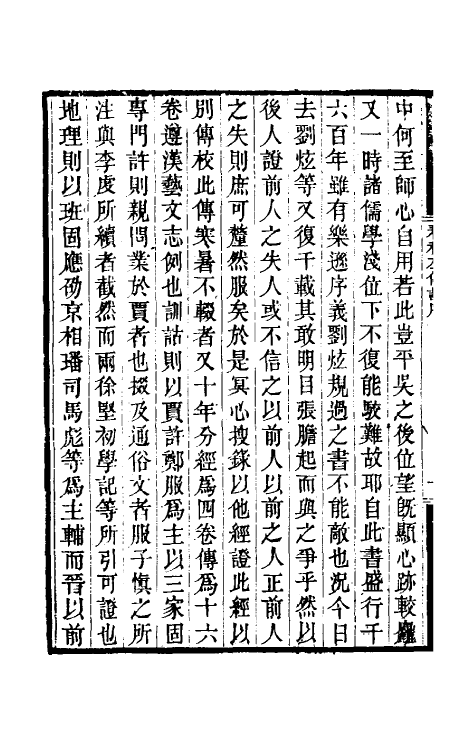 中何至師心自用若此豈平吳之後位望旣顯心跡較麤
又一時諸儒學淺位下不復能駮難故耶自此書盛行千
六百年雖有樂遜序義劉炫規過之書不能敵也況今日
去劉炫等又復千載其敢明目張膽起而與之爭乎然以
後人證前人之失人或不信之以前人以前之人正前人
之失則庶可釐然服矣於是冥心搜錄以他經證此經以
別傳校此傳寒暑不輟者又十年分經爲四卷傳爲十六
卷遵漢藝文志例也訓詁則以賈許鄭服爲主以三家固
專門許則親問業於賈者也掇及通俗文者服子愼之所
注與李虔所續者截然而兩徐堅初學記等所引可證也
地理則以班固應劭京相璠司馬彪等爲主輔而晉以前